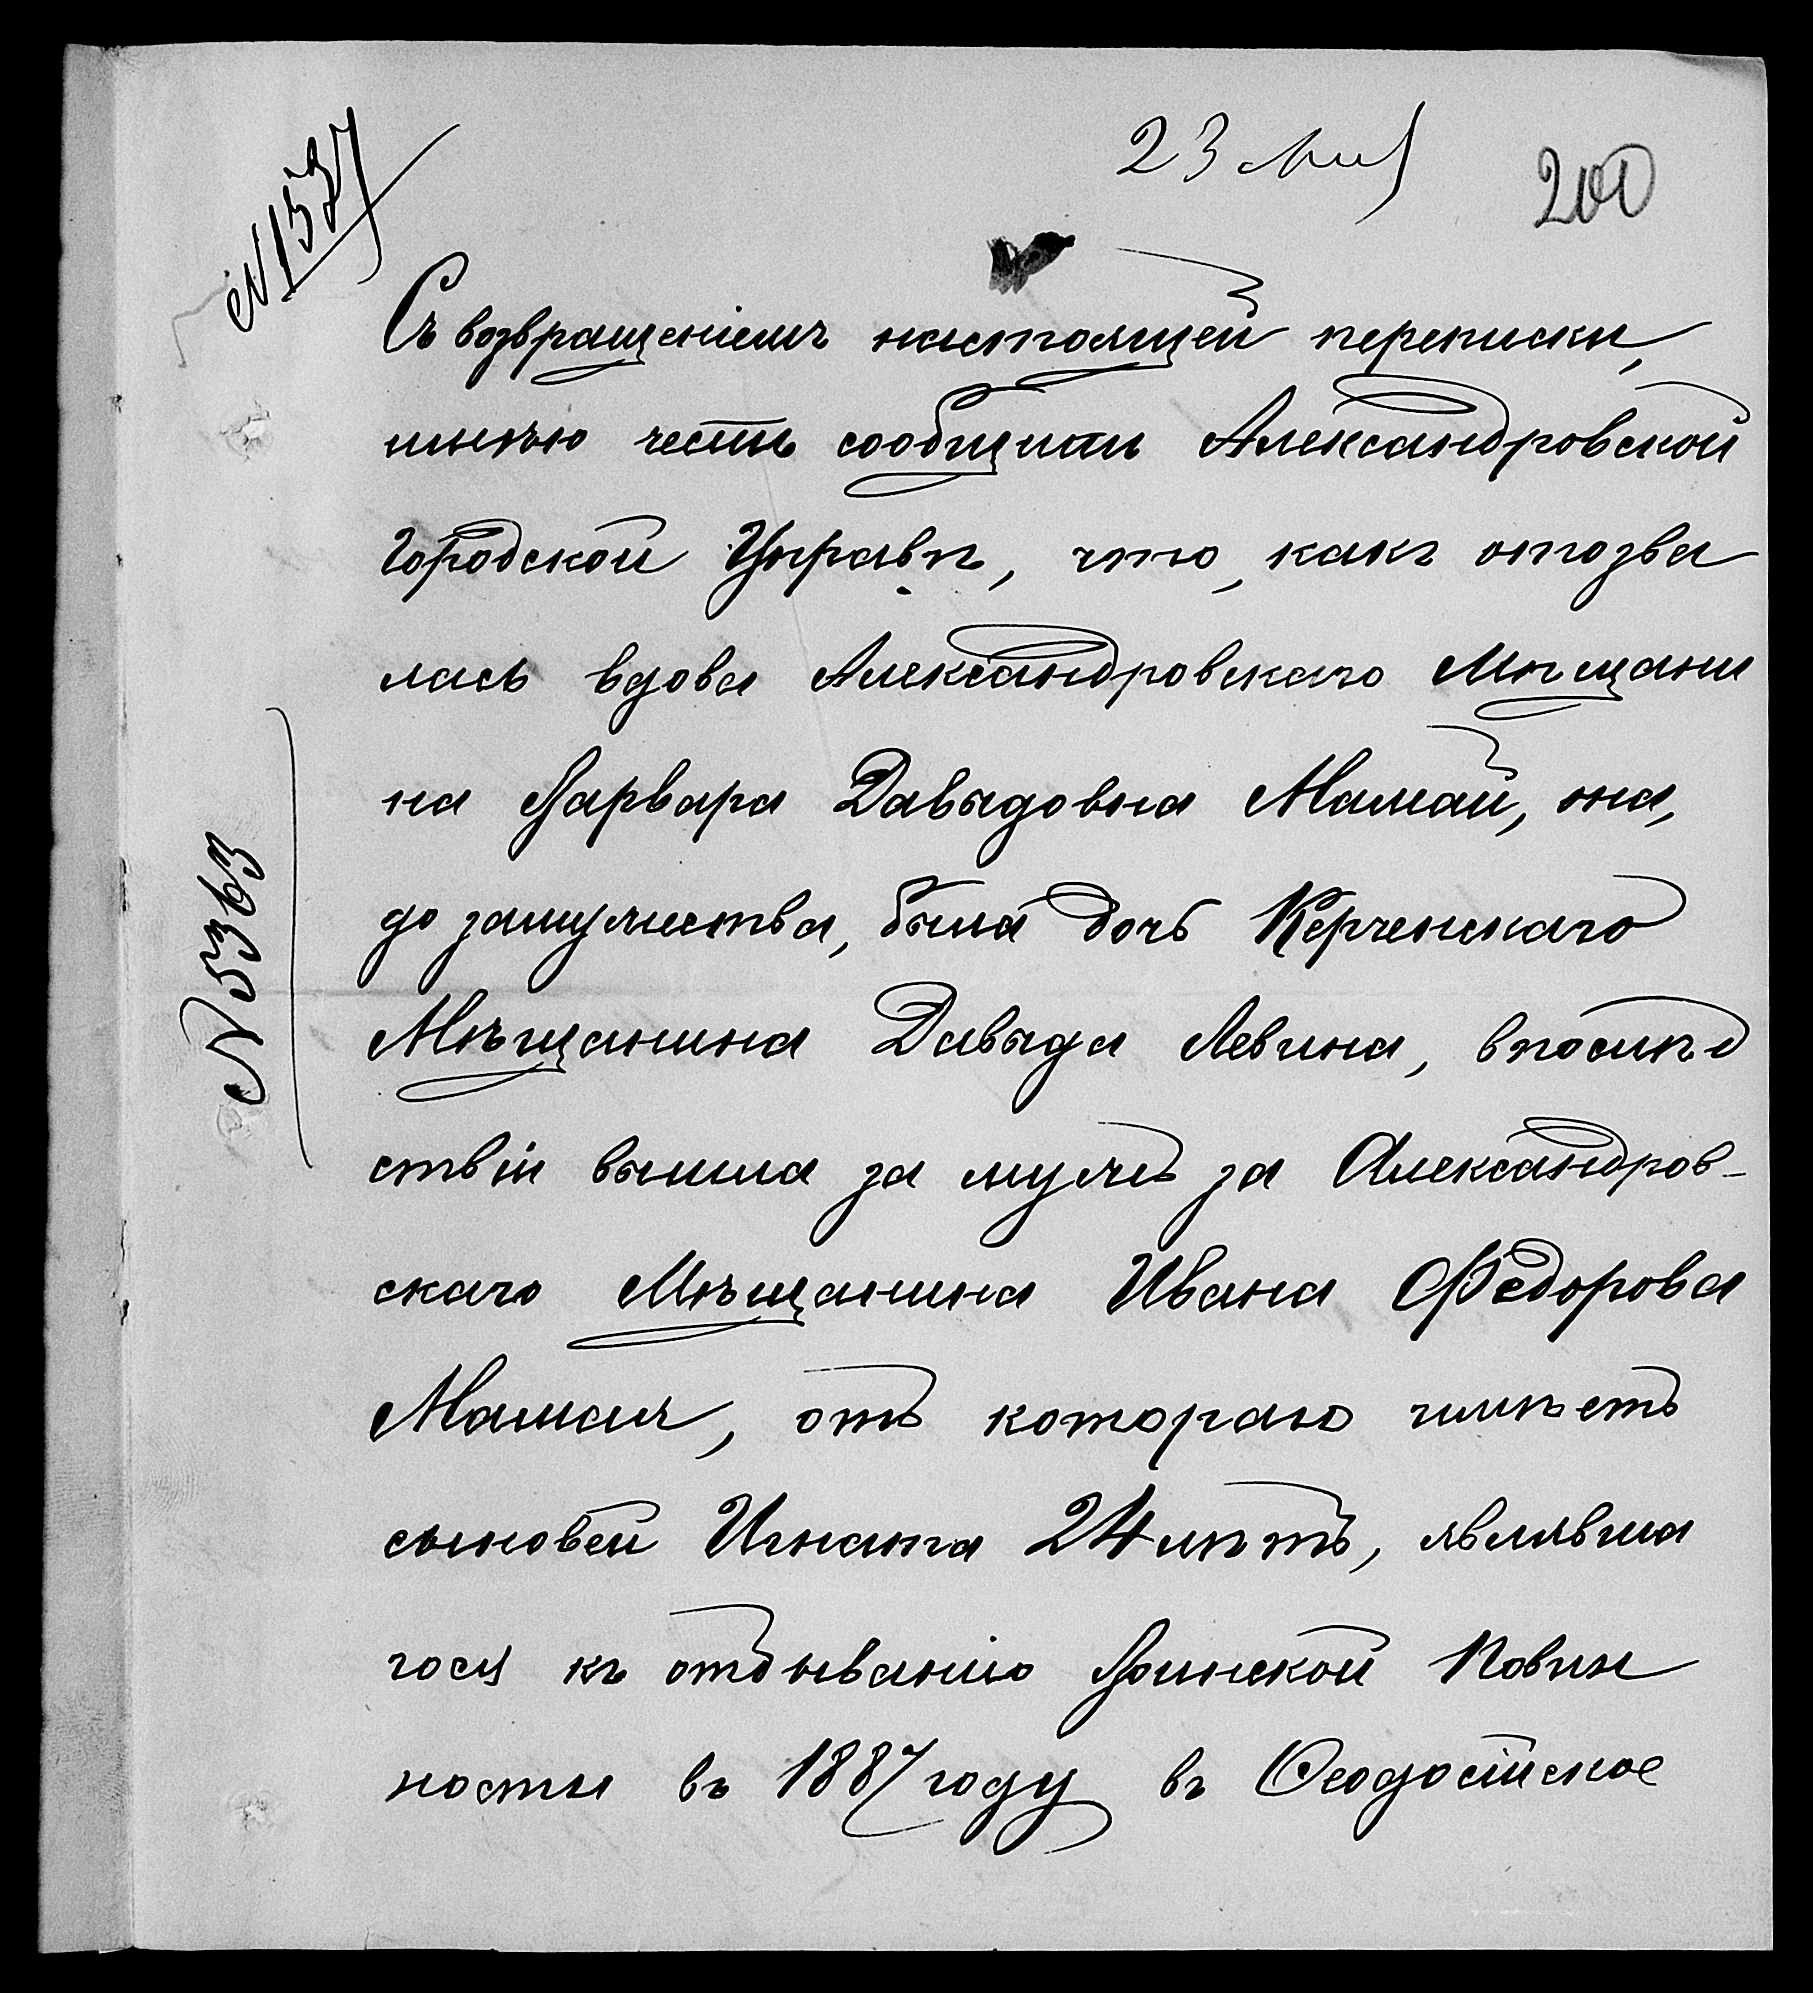 №1537
23 Мая
200
Съ возвращеніемъ настоящей переписки,
имѣю честь сообщить Александровской
Городской Управѣ, что, какъ отозва
лась вдова Александровскаго Мѣщани
на Варвара Давыдовна Мамай, она,
до замужества, была дочь Керченскаго
Мѣщанина Давыда Левина, впослѣд
ствіи вышла за мужъ за Александров-
скаго Мѣщанина Ивана Федорова
Мамая, отъ котораго имѣетъ
сыновей Игната 24 лѣтъ, являвша
гося къ отбыванію Воинской Повин
ности въ 1887 году въ Ѳеодосійское
№5363